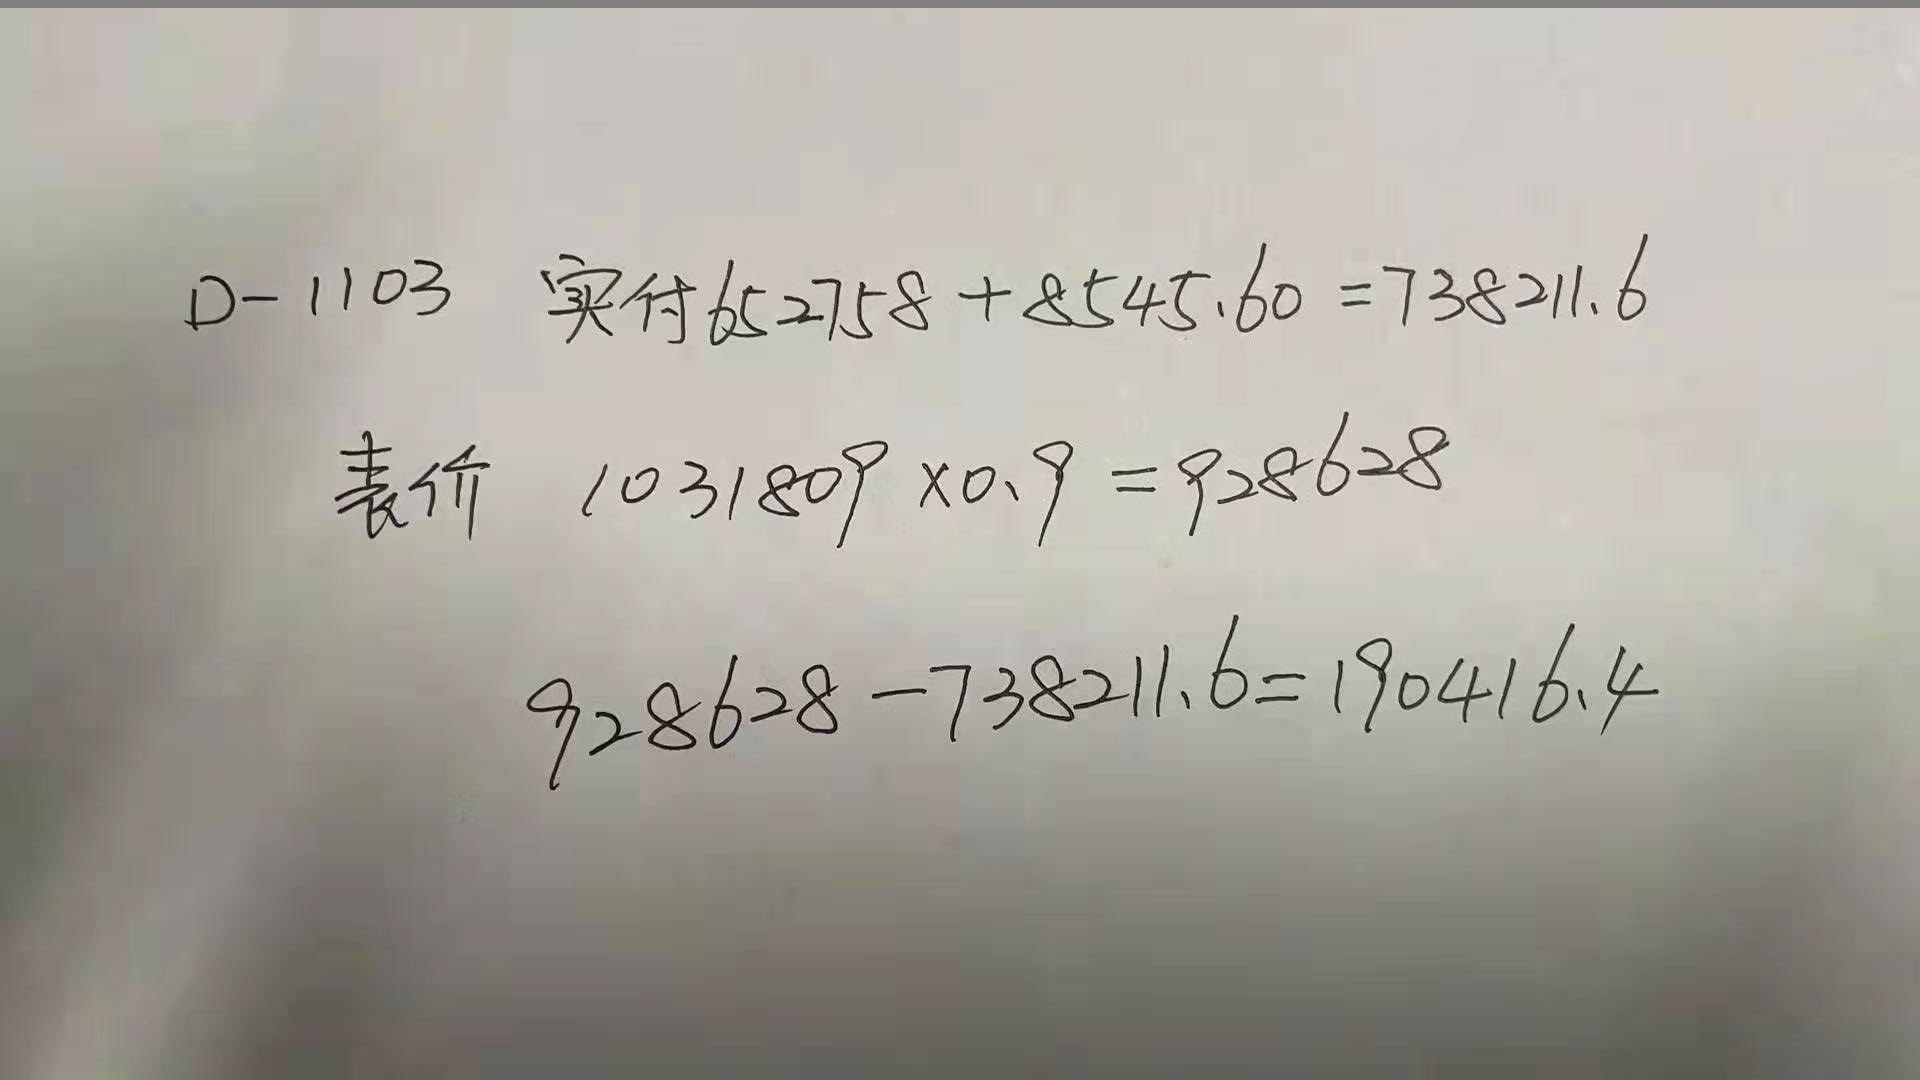 D-1103 实付652758+8545.60=738211.6
表价 1031809×0.9=928628
928628-738211.6=190416.4